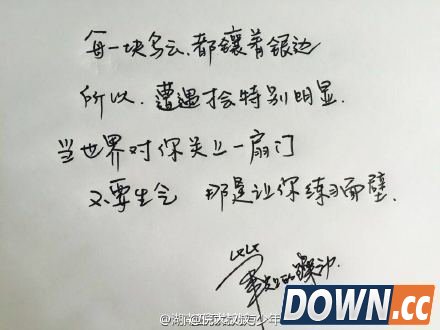 每一块乌云,都镶着银边
所以,遭遇才会特别明显.
当世界对你关上一扇门
不要生气 那是让你练习面壁.
DOWN.cc